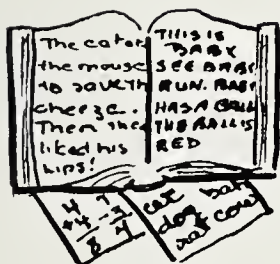 The cat or
the mouse
to save th
cheeze.
Then the
liked his
lips!
THIS IS
BABY
SEE BABY
RUN. BABY
HAS A BALL
THE BALL IS
RED
4
+4
8
7
-3
4
cat bat
dog
rat cow